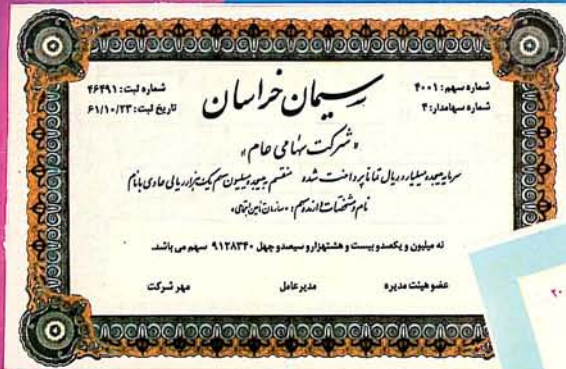 شماره سهم: ۴۰۰۱
شماره سهامدار: ۴
سیمان خراسان
شماره ثبت: ۴۶۴۹۱
تاریخ ثبت: ۶۱/۱۰/۲۳
«شرکت سهامی عام»
سرمایه هیجده میلیارد ریال تماماً پرداخت شده منقسم به هیجده میلیون سهم یک هزار ریالی عادی بانام
نام و مشخصات دارنده سهم: «سازمان تأمین اجتماعی»
نه میلیون و یکصدو بیست و هشتهزارو سیصدو چهل ۹۱۲۸۳۴۰ سهم می باشد.
عضو هیئت مدیره مدیر عامل مهر شرکت
۲۰